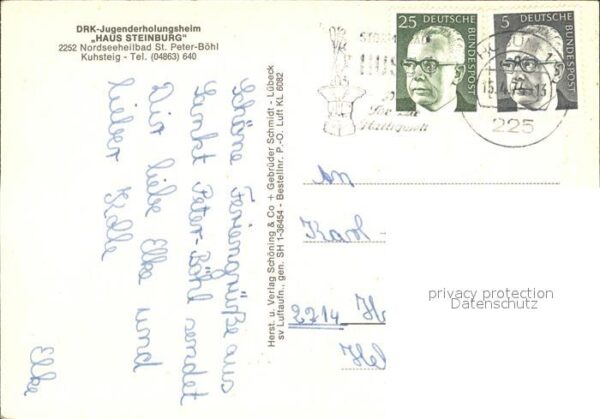 DRK-Jugenderholungsheim
„HAUS STEINBURG"
2252 Nordseeheilbad St. Peter-Böhl
Kuhsteig - Tel. (04863) 640
25 DEUTSCHE BUNDESPOST
5 DEUTSCHE BUNDESPOST
15.4.74-13
225
Schöne Feriengrüße aus
Sankt Peter-Böhl sendet
Dir liebe Elke und
lieber Kalle
Elke
Herst. u. Verlag Schöning & Co + Gebrüder Schmidt - Lübeck
sv Luftaufn., gen. SH 1-36454 - Bestellnr. P.-O. Luft KL 6082
An
Karl-
2214
privacy protection
Datenschutz